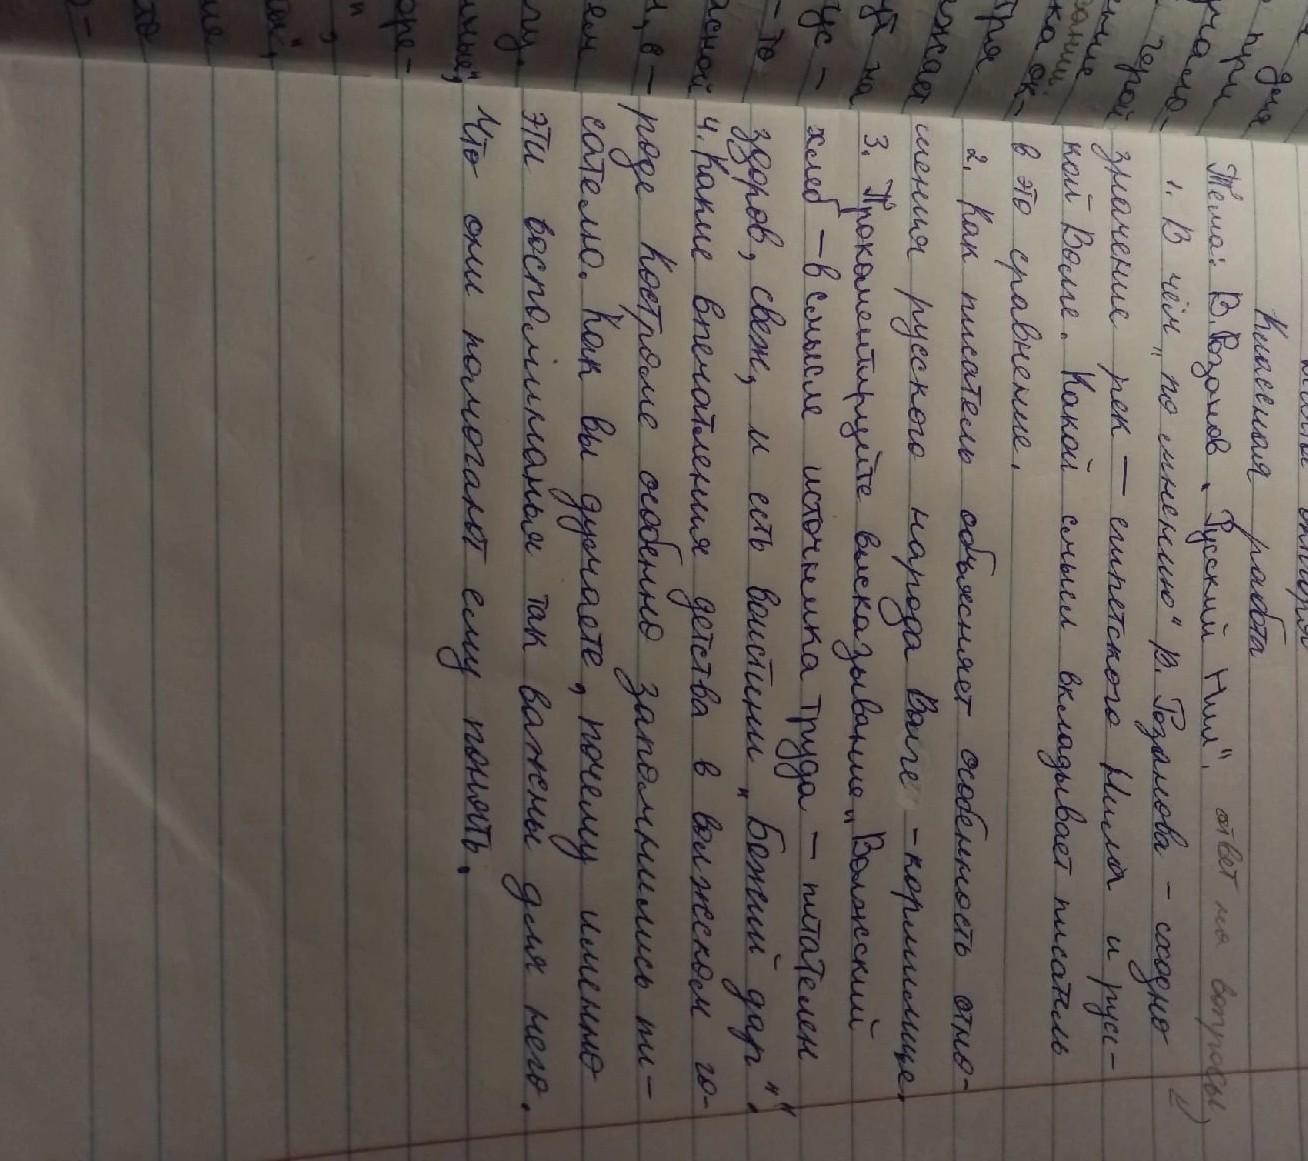 Классная работа
Тема: В. Розанов „Русский Нил". ответ на вопросы
1. В чём „по мнению" В. Розанова – сходно
значение рек – египетского Нила и русс-
кой Волге. Какой смысл вкладывает писатель
в это сравнение.
2. Как писатель объясняет особенность отно-
шения русского народа Волге – кормилице.
3. Прокоментируйте высказывание „Волжский
хлеб – в смысле источника труда – питателен
здоров, свеж, и есть воистину „Божий дар".
4. Какие впечатления детства в волжском го-
роде Костроме особенно запомнились пи-
сателю. Как вы думаете, почему именно
эти воспоминанья так важны для него.
Что они помогают ему понять.